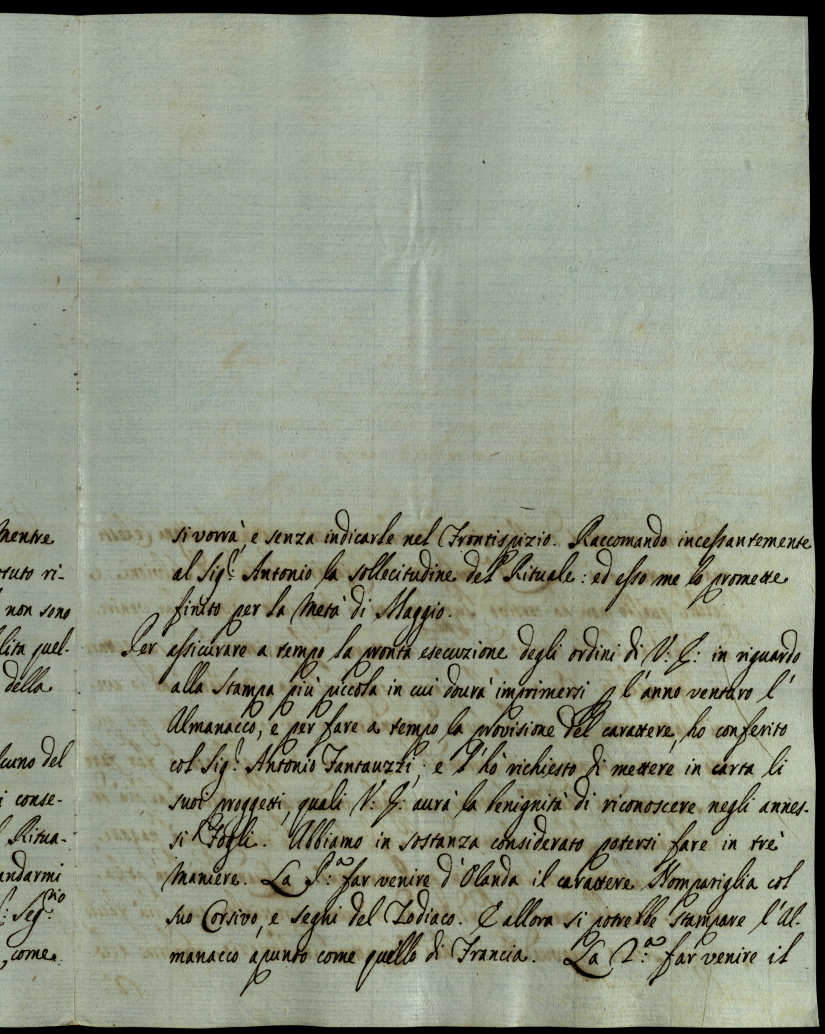 mentre
ri-
non sono
lita quel-
della
cuno del
conse-
Ritua-
andarmi
come
si vorrà, e senza indicarle nel Frontispizio. Raccomando incessantemente
al Sig.r Antonio la sollecitudine del Rituale: ed esso me lo promette
finito per la Metà di Maggio.
Per assicurare a tempo la pronta esecuzione degli ordini di V: E: in riguardo
alla Stampa più piccola in cui dourà imprimersi p l'anno venturo l'
Almanacco, e per fare a tempo la provisione del carattere, ho conferito
col Sig.r Antonio Fantauzzi; e l'hò richiesto di mettere in carta li
suoi proggetti, quali V: E: aurà la benignità di riconoscere negli annes-
si Fogli. Abbiamo in sostanza considerato potersi fare in trè
Maniere. La P:a far venire d'Olanda il carattere Nompariglia col
suo Corsivo, e segni del Zodiaco. E allora si potrebbe stampare l'Al-
manacco apunto come quello di Francia. La 2:a far venire il